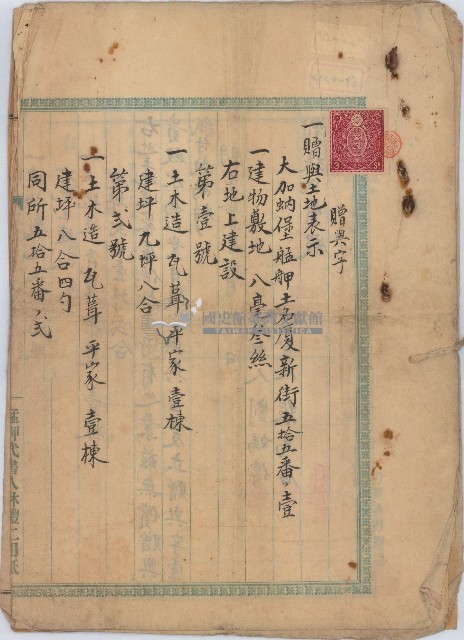 贈與字
一贈與土地表示
大加蚋堡艋舺土名廈新街五拾五番ノ壹
一建物敷地 八毫叁絲
右地上建設
第壹號
一土木造瓦葺平家壹棟
建坪九坪八合
第弍號
一土木造瓦葺平家壹棟
建坪八合四勺
同所五拾五番ノ弍
國史館臺灣文獻館
TAIWAN HISTORICA